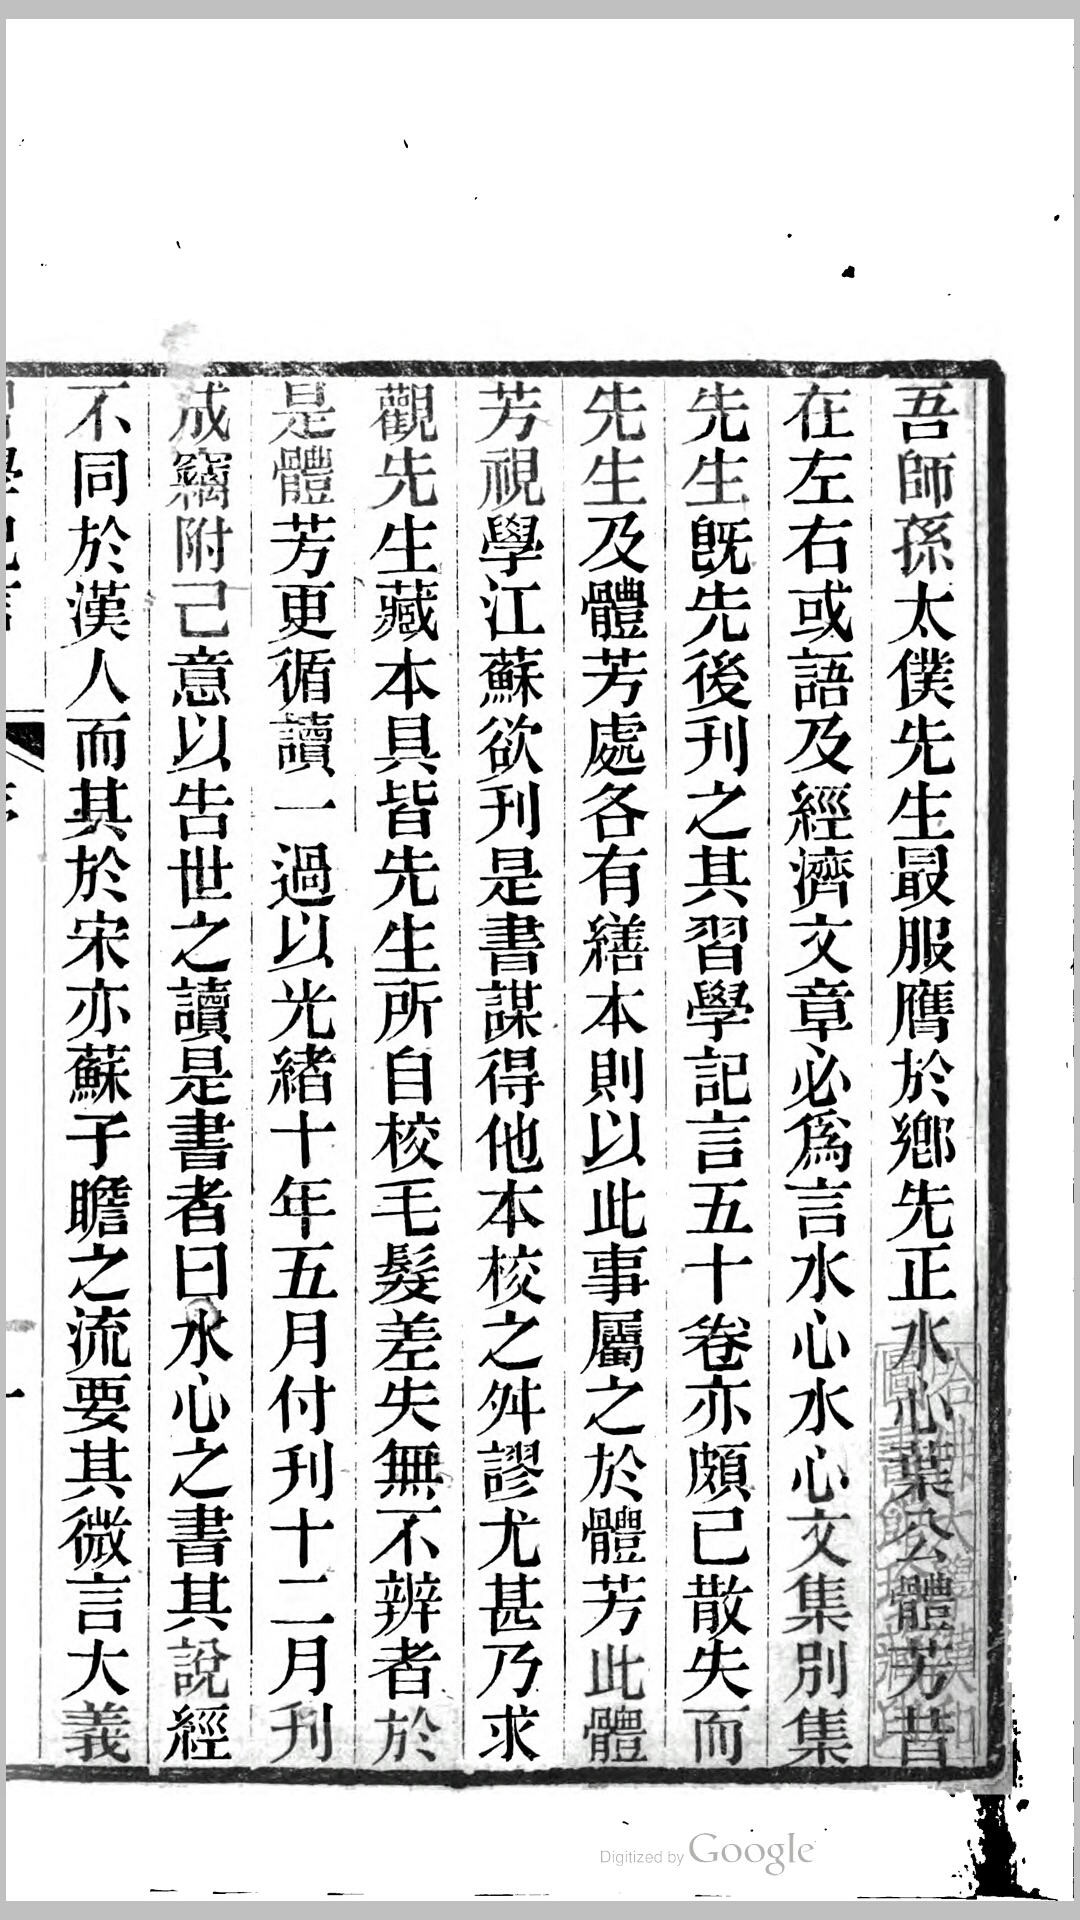 吾師孫太僕先生最服膺於鄕先正水心葉公體芳昔
在左右或語及經濟文章必爲言水心水心文集別集
先生旣先後刊之其習學記言五十卷亦頗已散失而
先生及體芳處各有繕本則以此事屬之於體芳此體
芳視學江蘇欲刊是書謀得他本校之舛謬尤甚乃求
觀先生藏本具皆先生所自校毛髮差失無不辨者於
是體芳更循讀一過以光緒十年五月付刊十二月刊
成竊附己意以告世之讀是書者曰水心之書其說經
不同於漢人而其於宋亦蘇子瞻之流要其微言大義
Digitized by Google